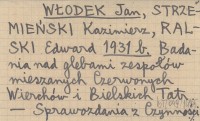 WŁODEK Jan, STRZE-
MIEŃSKI Kazimierz, RAL-
SKI Edward 1931 b. Bada-
nia nad glebami zespołów
mieszanych Czerwonych
Wierchów i Bielskich Tatr
Sprawozdania z Czynności